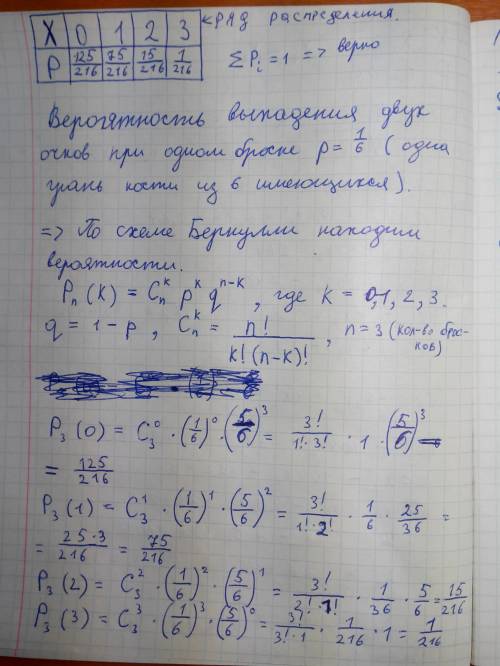 X 0 1 2 3 ← ряд распределения.
P 125/216 75/216 15/216 1/216 ΣPi = 1 => верно
Вероятность выпадения двух
очков при одном броске p = 1/6 (одна
грань кости из 6 имеющихся).
=> По схеме Бернулли находим
вероятности.
Pn(K) = Cn^k p^k q^(n-k), где K = 0,1, 2, 3.
q = 1 - p, Cn^k = n!/(k!(n-k)!), n = 3 (кол-во брос-
ков)
P3(0) = C3^0 · (1/6)^0 · (5/6)^3 = 3!/(1!·3!) · 1 · (5/6)^3 =
= 125/216
P3(1) = C3^1 · (1/6)^1 · (5/6)^2 = 3!/(1!·2!) · 1/6 · 25/36 =
= 25·3/216 = 75/216
P3(2) = C3^2 · (1/6)^2 · (5/6)^1 = 3!/(2!·1!) · 1/36 · 5/6 = 15/216
P3(3) = C3^3 · (1/6)^3 · (5/6)^0 = 3!/(3!·1) · 1/216 · 1 = 1/216